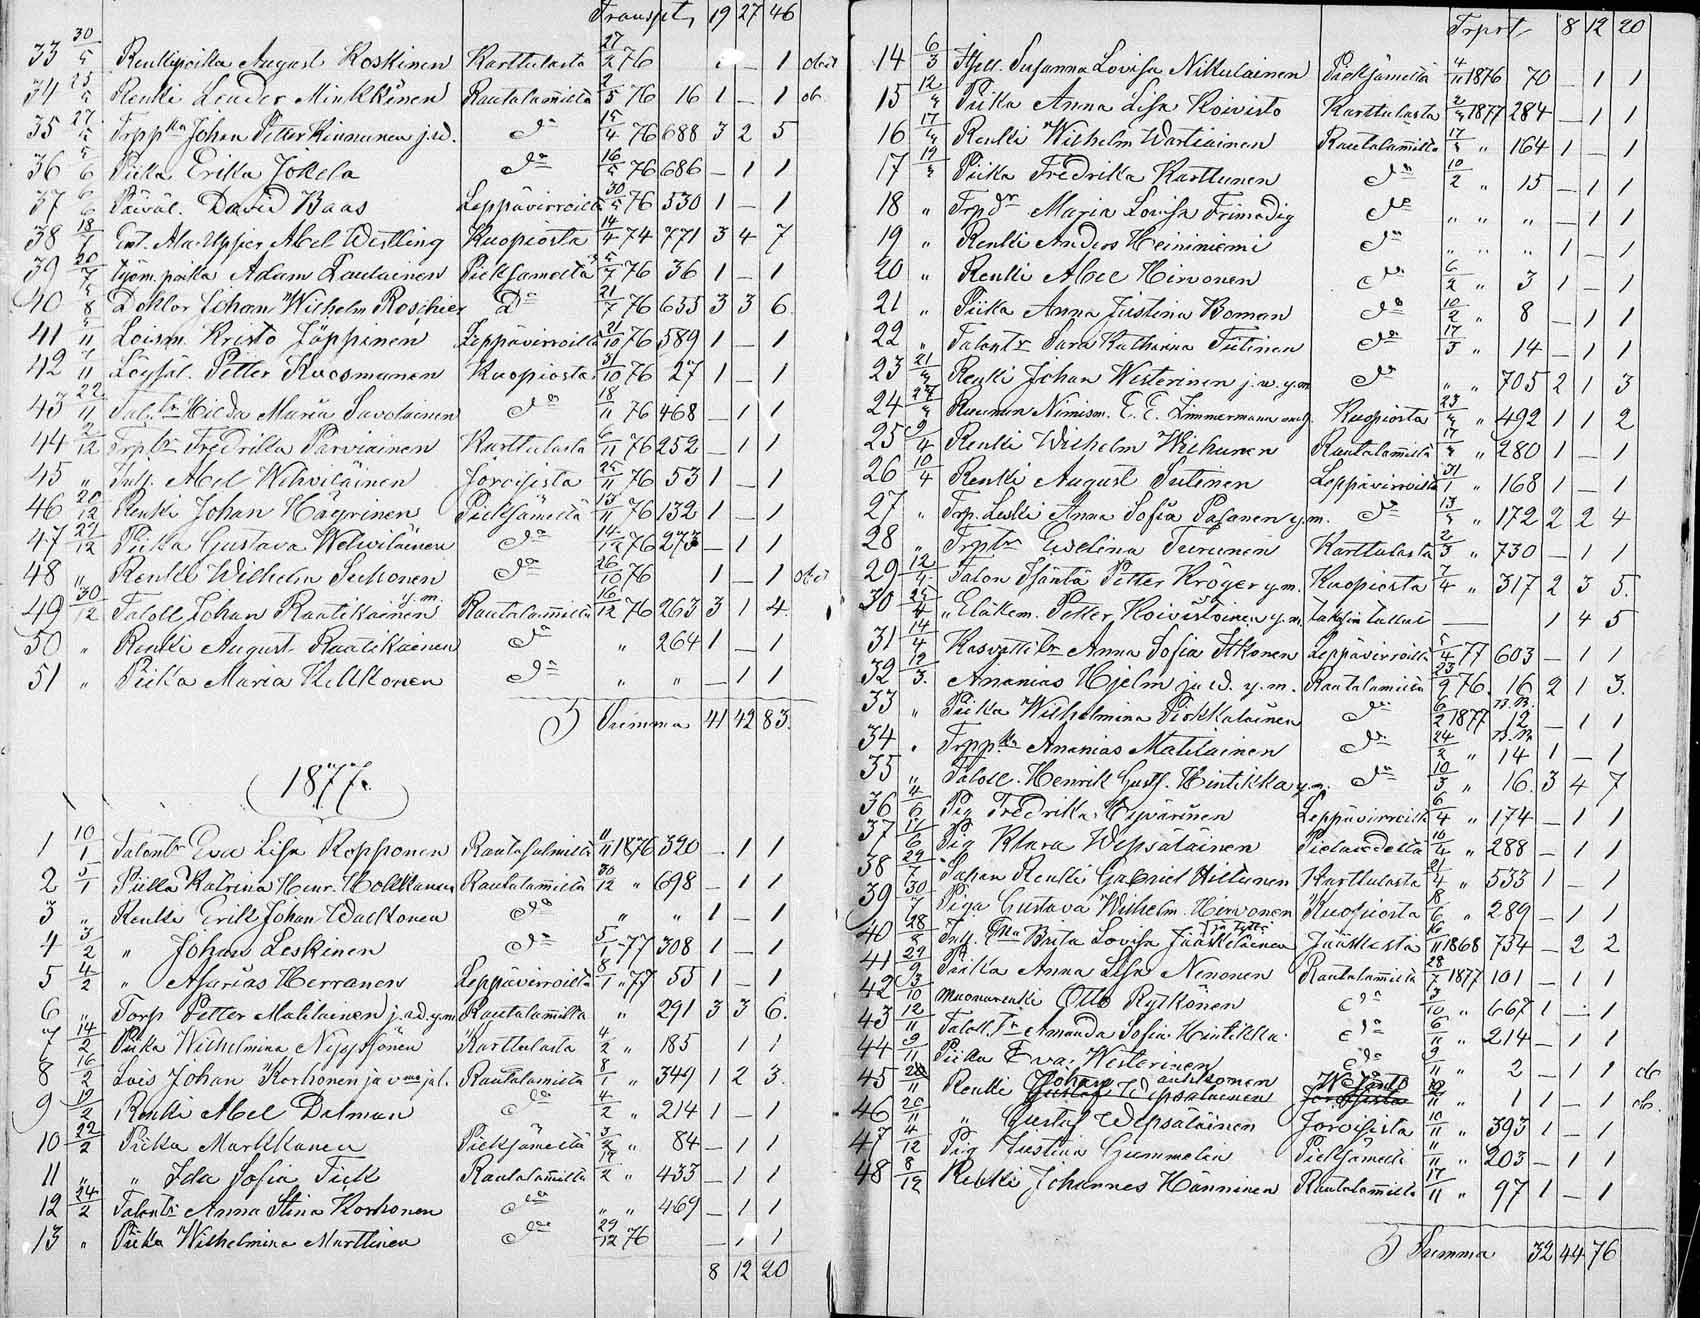 Transpt, 19 27 46
33 30/5 Renkipoika August Koskinen Karttulasta 27/2 76 1 — 1
34 25/5 Renki Leander Minkkinen Rautalammilta 2/5 76 16 1 — 1 ob.
35 27/5 Trppka Johan Petter Kinnunen j.w. do 15/4 76 688 3 2 5
36 5/6 Piika Erika Jokela do 16/5 76 686 — 1 1
37 6/6 Päiväl. David Baas Leppävirroilta 30/5 76 530 1 — 1
38 18/7 Ent. Ala-Upsier Abel Westling Kuopiosta 14/4 74 771 3 4 7
39 20/7 työm. poika Adam Laulainen Pieksämältä 5/7 76 36 1 — 1
40 5/8 Doktor Johan Wilhelm Rosihier Do 21/7 76 635 3 3 6
41 5/11 Loism. Kristo Jäppinen Leppävirroilta 21/10 76 589 1 — 1
42 7/11 Löysäl. Petter Kuosmanen Kuopiosta 31/10 76 27 1 — 1
43 22/11 Tal. tr Hilda Maria Savolainen do 18/11 76 468 — 1 1
44 2/12 Trp tr Fredrika Parviainen Karttulasta 6/11 76 252 — 1 1
45 " Itsl. Abel Wihviläinen Joroisista 25/11 76 53 1 — 1
46 20/12 Renki Johan Häyrinen Pieksämältä 13/11 76 132 1 — 1
47 27/12 Piika Gustava Wihviläinen do 14/12 76 273 — 1 1
48 " Renki Wilhelm Suhonen do 26/10 76 1 — 1
49 30/12 Taloll. Johan Raatikainen y.m. Rautalammilta 16/12 76 263 3 1 4.
50 " Renki August Raatikainen do " 264 1 — 1
51 " Piika Maria Kilkkonen do " " — 1 1
Summa 41 42 83.
1877.
1 10/1 Talontr Eva Lisa Ropponen Rautasalmelta 11/11 1876 320 — 1 1
2 5/1 Piika Katrina Henr. Holkkanen Rautalammilta 30/12 " 698 — 1 1
3 " Renki Erik Johan Walkonen do " " 1 — 1
4 3/2 " Johan Leskinen do 5/1 77 308 1 — 1
5 4/2 " Asarias Herranen Leppävirroilta 8/1 77 55 1 — 1
6 " Torp Petter Matilainen j.w. y.m. Rautalammilta " 291 3 3 6.
7 14/2 Piika Wilhelmina Nyyssönen Karttulasta 4/2 " 185 1 1
8 16/2 Lois Johan Korhonen ja vmo ja l. Rautalammilta 8/1 " 349 1 2 3.
9 19/2 Renki Abel Dalman do 4/2 " 214 1 — 1
10 22/2 Piika Markkanen Pieksämältä 3/2 " 84 — 1 1
11 " " Ida Sofia Tick Rautalammilta 19/2 " 433 — 1 1
12 24/2 Talontr Anna Stina Korhonen do " " 469 — 1 1
13 " Piika Wilhelmina Marttinen do 29/12 76 — 1 1
8 12 20
Trprt 8 12 20
14 6/3 Itsell. Susanna Lovisa Nikulainen Pieksämältä 4/11 1876 70 — 1 1
15 12/3 Piika Anna Lisa Koivisto Karttulasta 2/3 1877 284 — 1 1
16 17/3 Renki Wilhelm Wartiainen Rautalammilta 17/3 " 164 1 — 1
17 19/3 Piika Fredrika Karttunen do 10/2 " 15 — 1 1
18 " Trpdr Maria Lovisa Frimodig do " " " — 1 1
19 " Renki Anders Heininiemi do " " " 1 — 1
20 " Renki Abel Hirvonen do 6/2 " 3 1 — 1
21 " Piika Anna Justina Boman do 10/2 " 8 — 1 1
22 " Talontr Sara Katharina Tutinen do 17/3 " 14 — 1 1
23 21/3 Renki Johan Westerinen j.w. y.m. do " " 705 2 1 3
24 24/3 Ruunun Nimism. E. E. Zimmermann Kuopiosta 23/3 " 492 1 1 2
25 9/4 Renki Wilhelm Wihunen Rautalammilta 17/3 " 280 1 — 1
26 10/4 Renki August Sutinen Leppävirroilta 31/1 " 168 1 — 1
27 " Trp. Leski Anna Sofia Pasanen y.m. do 13/3 " 172 2 2 4
28 " Trptr Evelina Turunen Karttulasta 2/3 " 730 — 1 1
29 12/4 Talon Isäntä Petter Kröger y.m. Kuopiosta 7/4 " 317 2 3 5.
30 25/4 " Eläkem. Petter Koivistoinen y.m. takasin tullut — 1 4 5
31 14/4 Kasvatti tr Anna Sofia Itkonen Leppävirroilta 5/4 77 603 — 1 1
32 12/3. Ananias Hjelm ja w. y.m. Rautalammilta 23/9 76. 16 2 1 3.
33 " Piika Wilhelmina Pirkkalainen do 6/2 1877 12 — 1 1
34 " Trppka Ananias Matilainen do 24/2 " 14 1 — 1
35 " Taloll. Henrik Gust. Hintikka y.m. do 10/3 " 16. 3 4 7
36 4/6 Pig Fredrika Hyvärinen Leppävirroilta 6/4 " 174 — 1 1
37 11/6 Pig Klara Wepsäläinen Pielavedeltä 16/4 " 288 — 1 1
38 29/7 Sahan Renki Gabriel Hiltunen Karttulasta 21/4 " 533 1 — 1
39 30/7 Piga Gustava Wilhelm. Hirvonen Kuopiosta 18/6 " 289 — 1 1
40 28/8 Itsl. Brita Lovisa Jääskeläinen ja tytär Jääskestä 16/11 1868 754 — 2 2
41 29/9 Piika Anna Lisa Nenonen Rautalammilta 28/7 1877 101 — 1 1
42 3/10 Muonarenki Otto Rytkönen do 3/10 " 667 1 — 1
43 12/11 Taloll. Tr Amanda Sofia Hintikka do 6/11 " 214 — 1 1
44 9/11 Piika Eva Westerinen do 9/11 " 2 — 1 1 ob
45 20/11 Renki Johan 12/11 " 1 1 — 1 ob.
46 20/11 " Gustaf Wepsäläinen Joroisista 10/11 " 393 1 — 1
47 4/12 Pig Justina Gummelin Pieksämältä 11/11 " 203 — 1 1
48 8/12 Renki Johannes Hänninen Rautalammilta 17/11 " 97 1 — 1
Summa 32 44 76